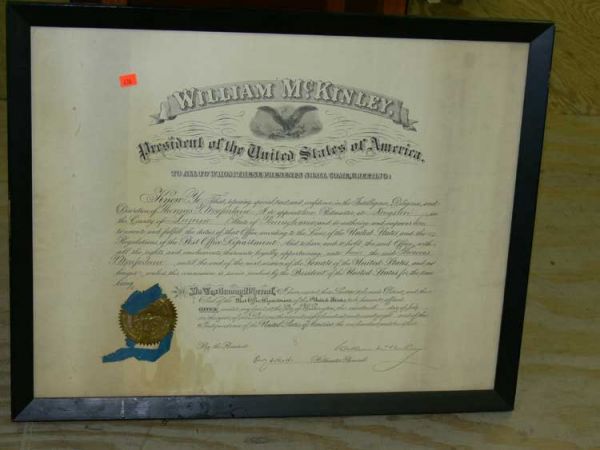 WILLIAM McKINLEY,
President of the United States of America.
TO ALL TO WHOM THESE PRESENTS SHALL COME, GREETING:
Know Ye, That, reposing special trust and confidence in the Intelligence, Diligence, and
Discretion of Thomas I do appoint him Postmaster at in
the County of Luzerne State of Pennsylvania and do authorize and empower him
to execute and fulfil the duties of that Office according to the Laws of the United States and the
Regulations of the Post Office Department. And to have and to hold the said Office, with
all the rights and emoluments thereunto legally appertaining, unto him the said Thomas
until the end of the next session of the Senate of the United States, and no
longer, unless this commission is sooner revoked by the President of the United States for the time
being.
In Testimony Whereof, I have caused these Letters to be made Patent, and the
Seal of the Post Office Department of the United States to be hereunto affixed.
GIVEN under my hand at the City of Washington, the day of July
in the year of
Independence of the United States of America the one hundred and
By the President:
William McKinley
Postmaster General.